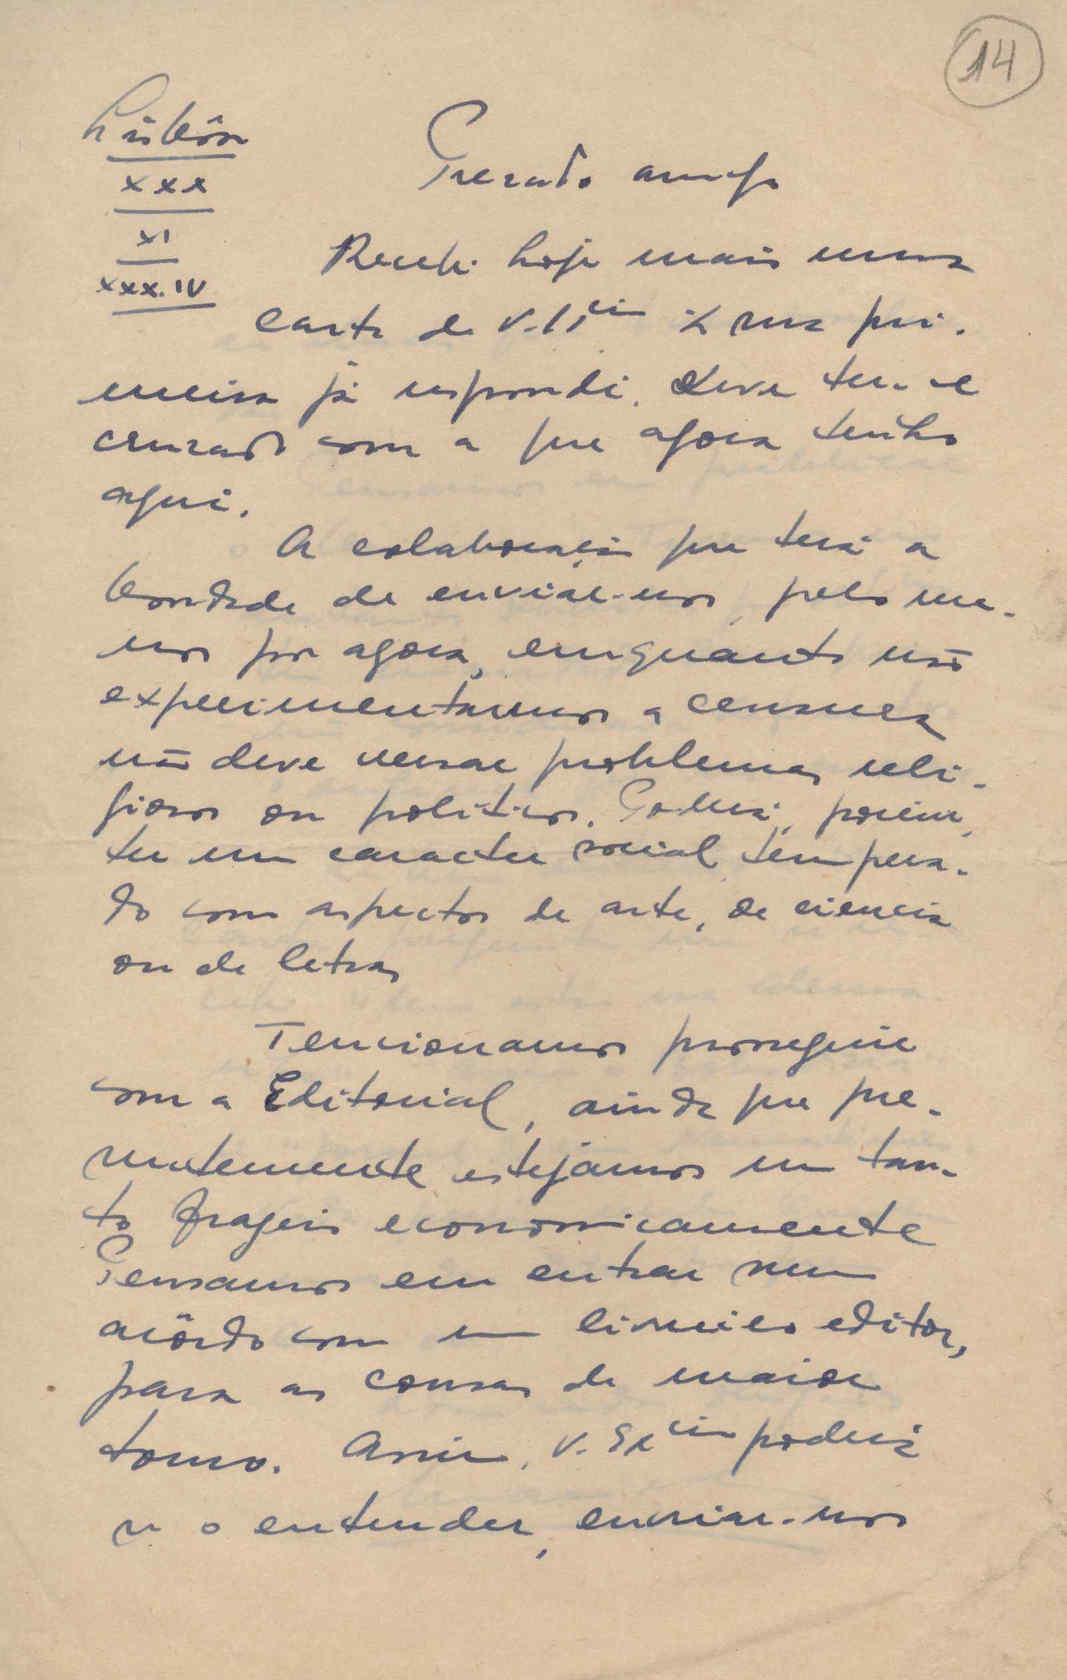 14
Lisbôa
XXX
XI
XXX.IV
Prezado amigo
Recebi hoje mais uma
carta de V. Ex.cia À sua pri-
meira já respondi. Deve ter-se
cruzado com a que agora tenho
aqui.
A colaboração que terá a
bondade de enviar-nos, pelo me-
nos por agora, emquanto não
experimentarmos a censura
não deve versar problemas reli-
giosos ou politicos. Poderá, porém,
ter um caracter social tempera-
do com aspectos de arte, de ciencia
ou de letras
Tencionamos proseguir
com a Editorial, ainda que pre-
sentemente estejamos um tan-
to frageis economicamente
Pensamos em entrar num
acôrdo com um livreiro editor,
para as cousas de maior
tomo. Assim, V. Ex.cia poderá
se o entender, enviar-nos